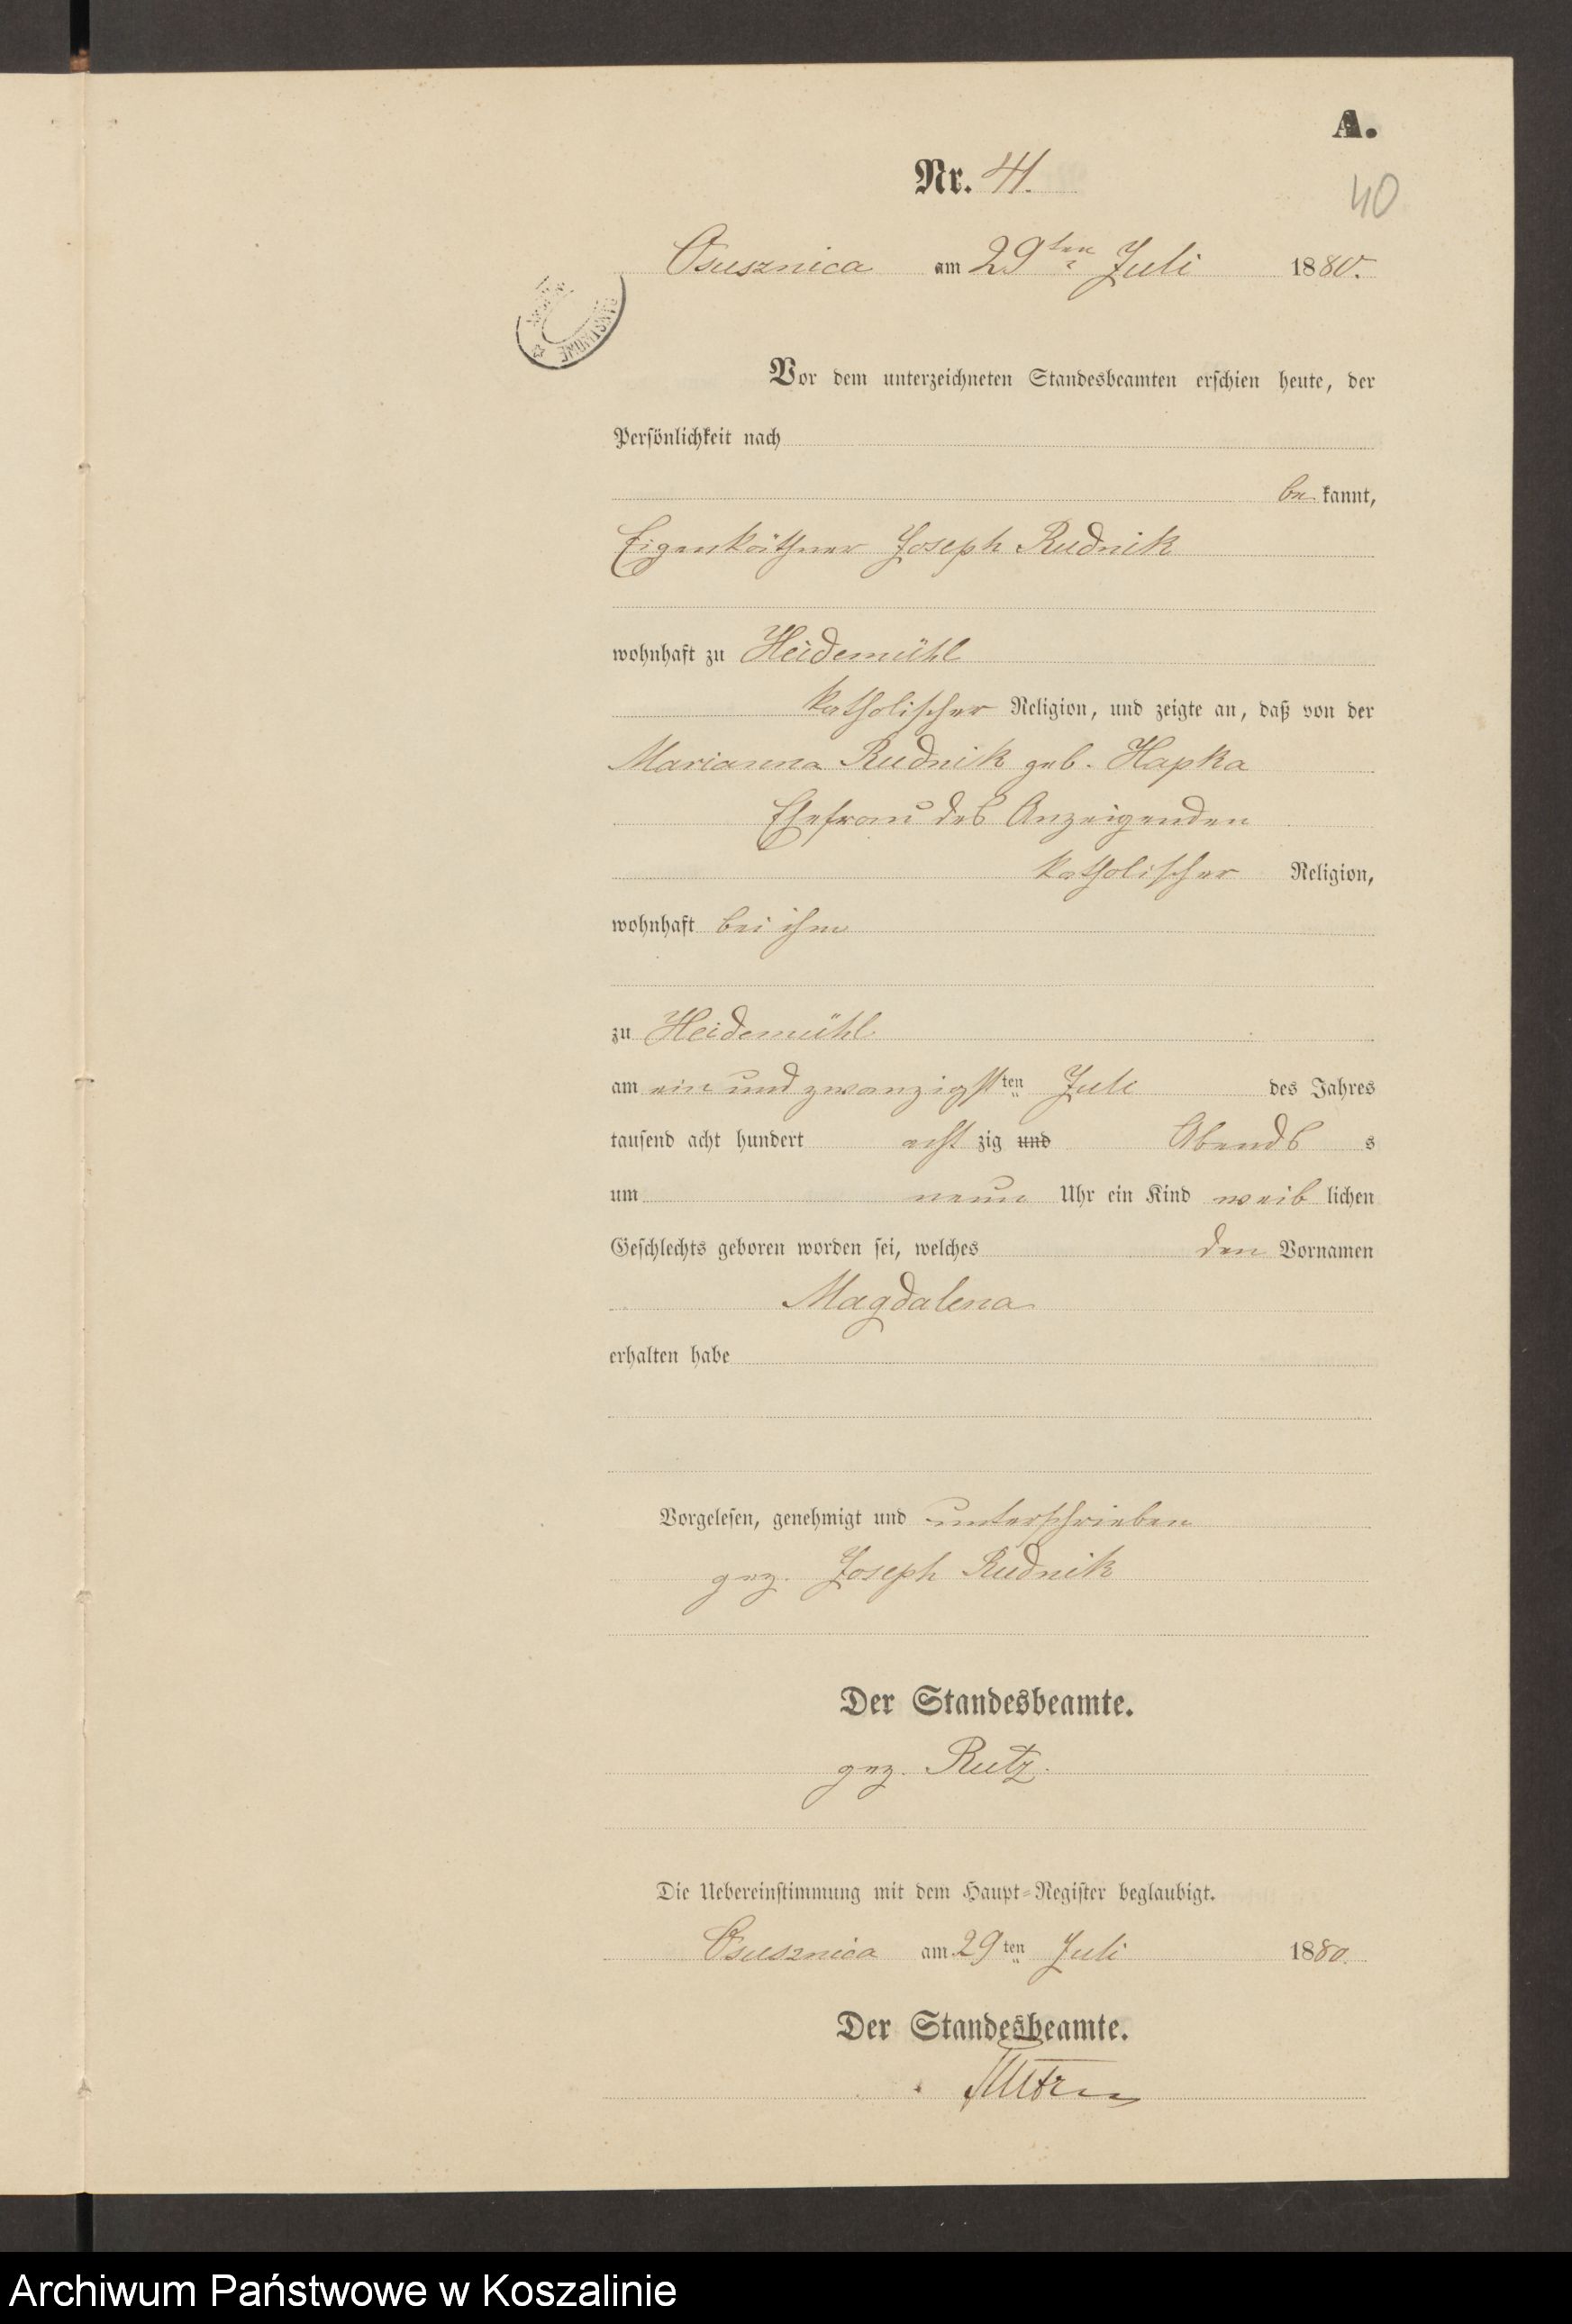 A.
Nr. 41.
40
Osusznica am 29ten Juli 1880.
Vor dem unterzeichneten Standesbeamten erschien heute, der
Persönlichkeit nach
be kannt,
Eigenkäthner Joseph Rudnik
wohnhaft zu Heidemühl
katholischer Religion, und zeigte an, daß von der
Marianna Rudnik geb. Hapka
Ehefrau des Anzeigenden
katholischer Religion,
wohnhaft bei ihm
zu Heidemühl
am ein und zwanzigsten Juli des Jahres
tausend acht hundert acht zig und Abends s
um neun Uhr ein Kind weib lichen
Geschlechts geboren worden sei, welches den Vornamen
Magdalena
erhalten habe
Vorgelesen, genehmigt und unterschrieben
gez. Joseph Rudnik
Der Standesbeamte.
gez. Rutz.
Die Uebereinstimmung mit dem Haupt-Register beglaubigt.
Osusznica am 29ten Juli 1880.
Der Standesbeamte.
Archiwum Państwowe w Koszalinie